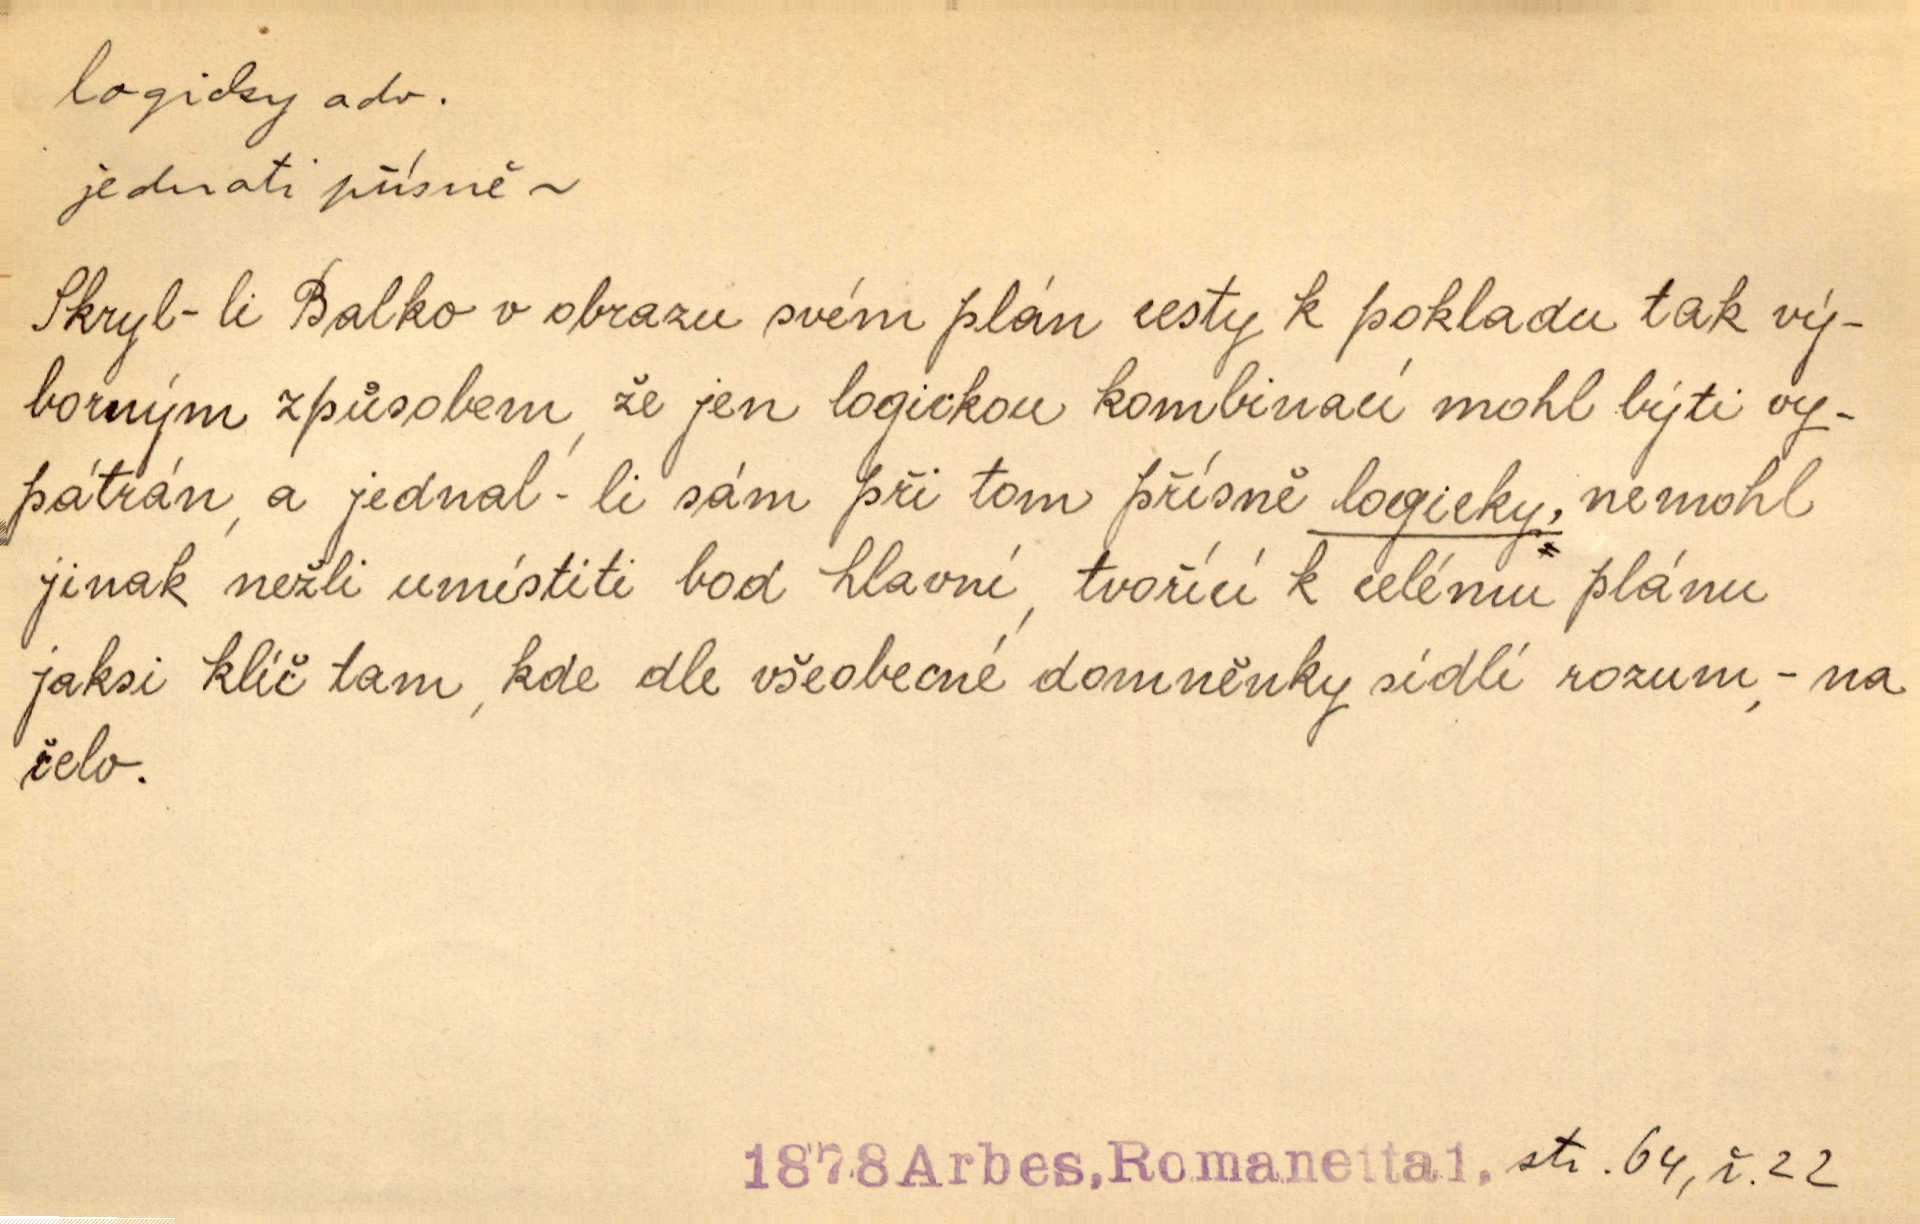 logicky adv.
jednati přísně ~
Skryl-li Balko v obrazu svém plán cesty k pokladu tak vý-
borným způsobem, že jen logickou kombinací mohl býti vy-
pátrán, a jednal-li sám při tom přísně logicky, nemohl
jinak nežli umístiti bod hlavní, tvořící k celému plánu
jaksi klíč tam, kde dle všeobecné domněnky sídlí rozum, - na
čelo.
1878 Arbes, Romanetta 1. str. 64, ř. 22